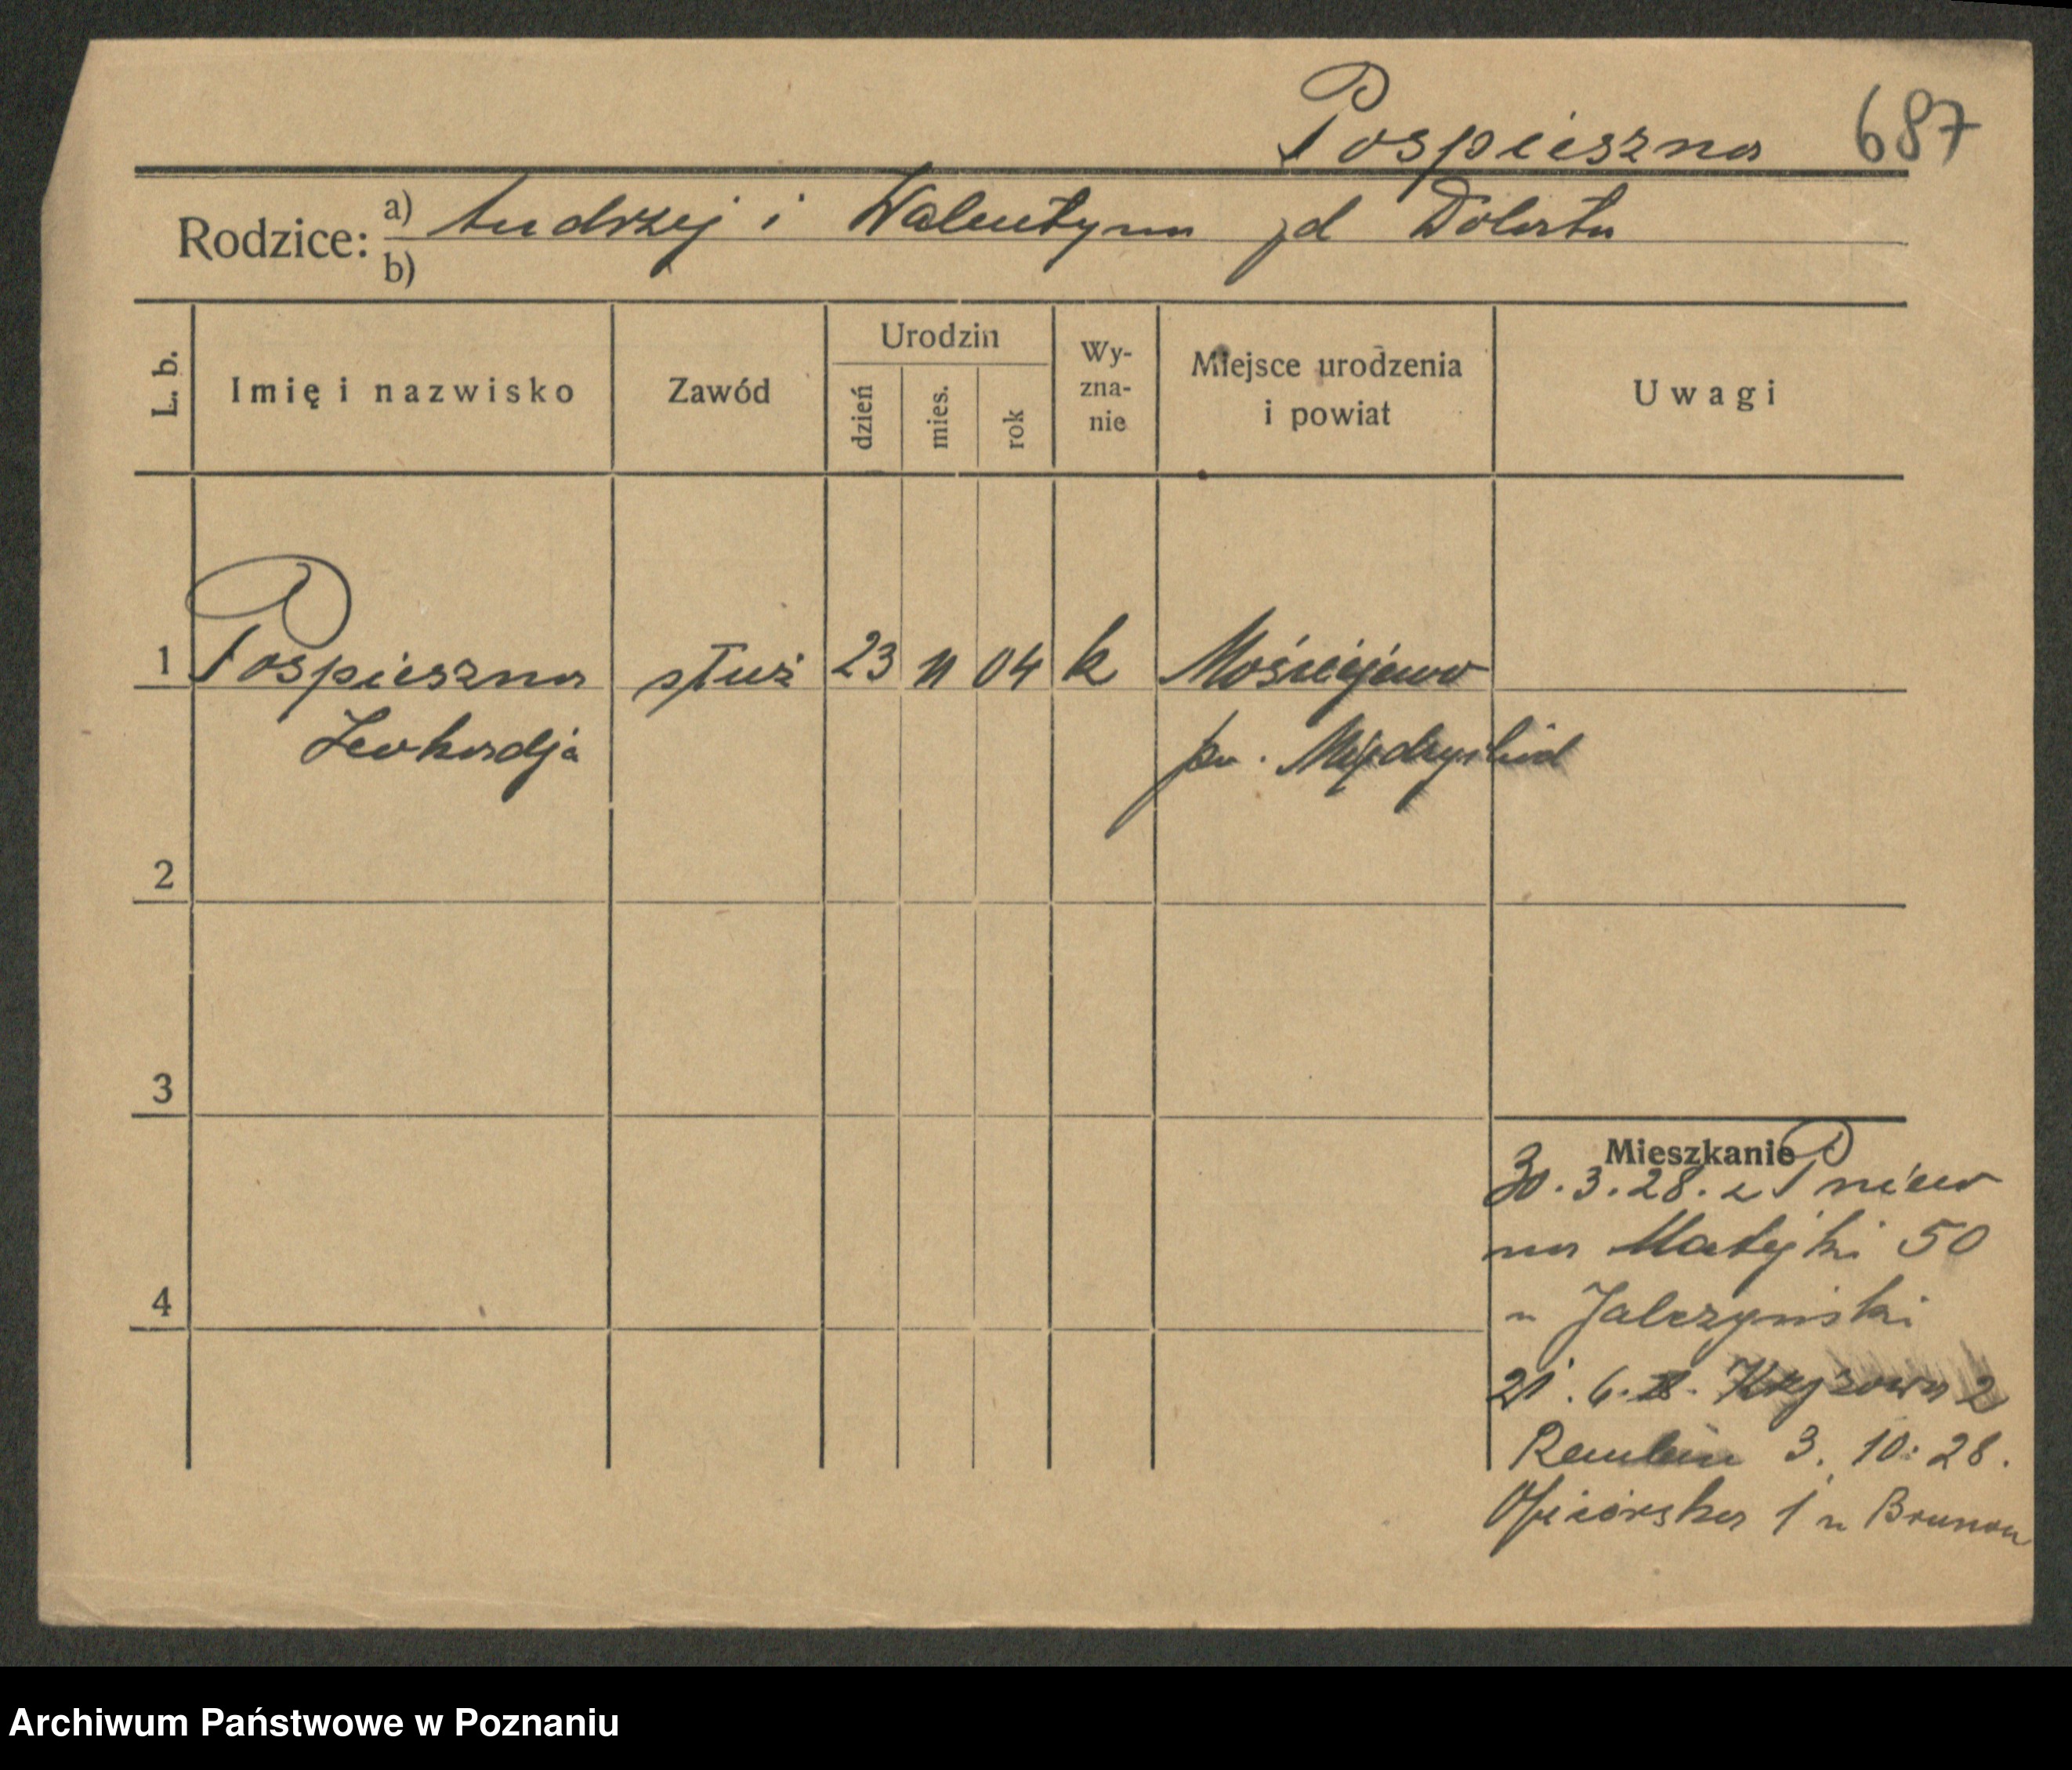 Pospieszna 687
Rodzice: a) Andrzej i Walentyna zd Dolata
b)
L. b.
Imię i nazwisko
Zawód
Urodzin
dzień
mies.
rok
Wy-
zna-
nie
Miejsce urodzenia
i powiat
Uwagi
1 Pospieszna służ 23 11 04 k Mościejewo
Leokadja pw. Międzychód
2
3
Mieszkanie
30.3.28. z Pniew
na Matejki 50
u Jalczyński
4
21.6.28. Krzyżowa 2
3. 10. 28.
Oficerska 1 u Brunon
Archiwum Państwowe w Poznaniu